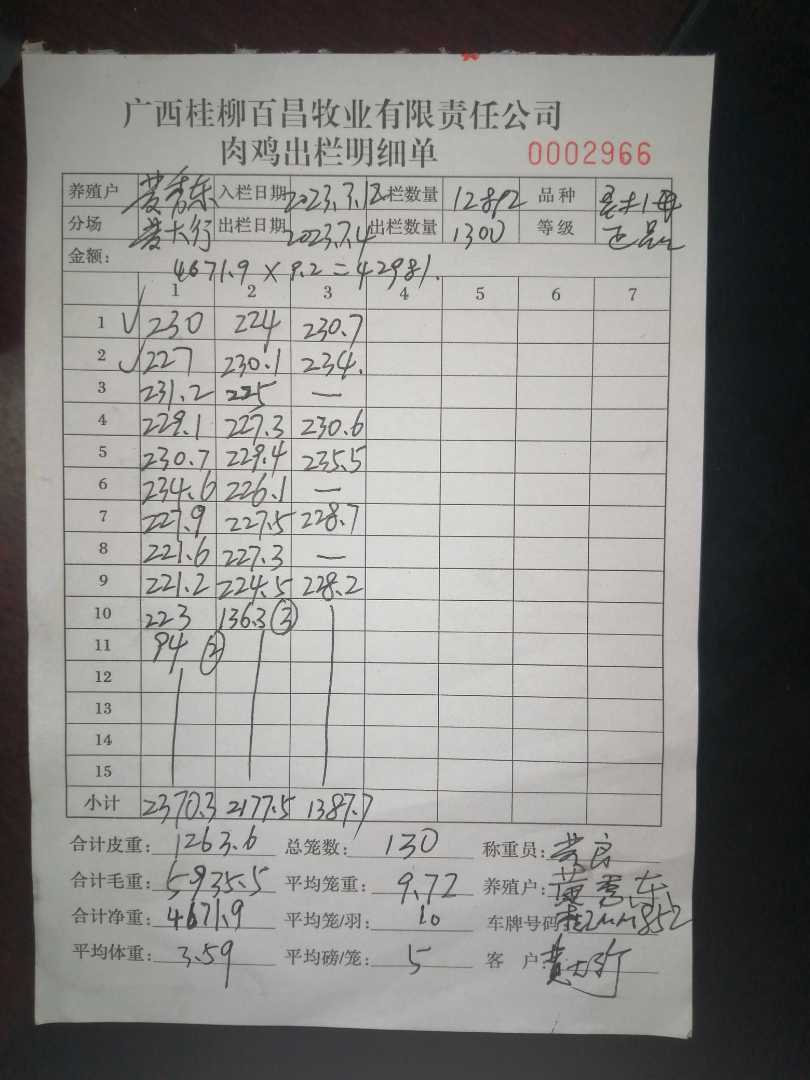 广西桂柳百昌牧业有限责任公司
肉鸡出栏明细单 0002966
养殖户 黄秀东 入栏日期 2023.3.12 栏数量 12892 品种
分场 黄大行 出栏日期 2023.7.4 出栏数量 1300 等级 正品
金额: 4671.9 × 9.2 = 42981.
1 2 3 4 5 6 7
1 √ 230 224 230.7
2 √ 227 230.1 234.
3 231.2 225 —
4 229.1 227.3 230.6
5 230.7 229.4 235.5
6 234.6 226.1 —
7 227.9 227.5 228.7
8 221.6 227.3 —
9 221.2 224.5 228.2
10 223 136.3 ③
11 94 ②
12
13
14
15
小计 2370.3 2177.5 1387.7
合计皮重: 1263.6 总笼数: 130 称重员:
合计毛重: 5935.5 平均笼重: 9.72 养殖户: 黄秀东
合计净重: 4671.9 平均笼/羽: 10 车牌号码
平均体重: 3.59 平均磅/笼: 5 客户: 黄大行